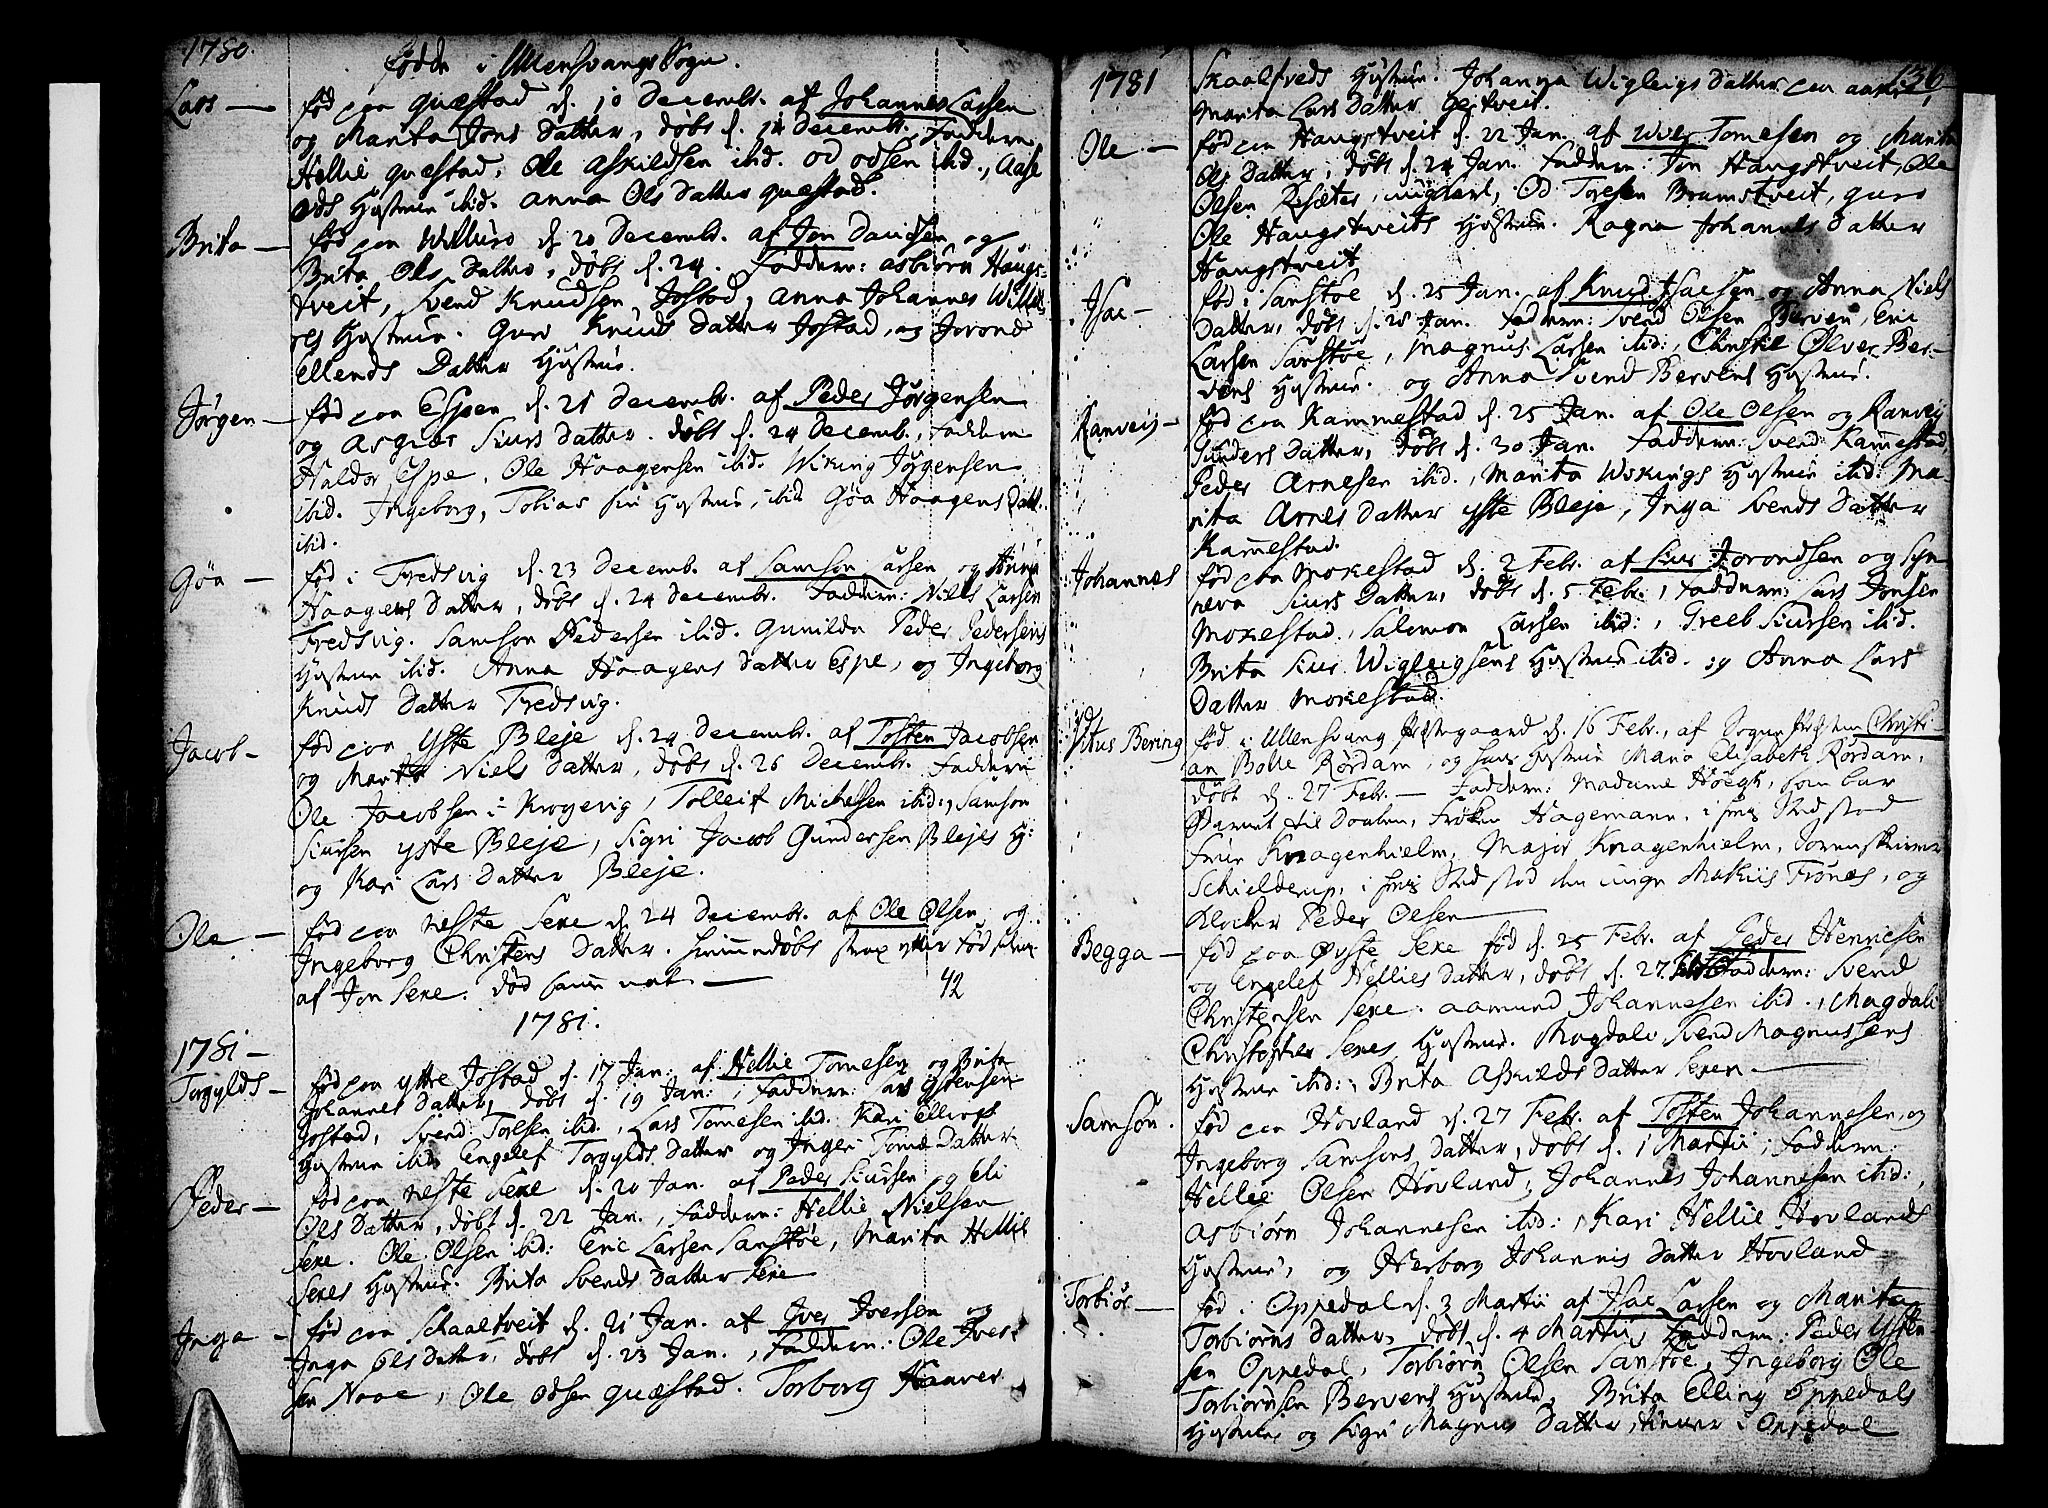 1780.
Fødde i Ullensvangs Sogn.
Lars — fød paa Quæstad d. 10 Decembr. af Johannes Larsen
og Marita Jons Datter, døbt d. 14 Decembr. Faddere
Hellie Quæstad, Ole Askildsen ibid. Od Odsen ibid., Aase
Ods Hustrue ibid. Anna Ols Datter Quæstad.
Brita — fød paa Willure d. 20 Decembr. af Jon Davidsen og
Brita Ols Datter, døbt d. 24. Faddere: Asbiørn Haugs-
tveit, Svend Knudsen Jøstad, Anna Johannes Willu-
res Hustrue. Guro Knuds Datter Jøstad, og Jorond
Ellends Datter Hustrue.
Jørgen — fød paa Espen d. 21 Decembr. af Peder Jørgensen
og Asgier Siurs Datter. døbt d. 24 Decemb., Faddere
Haldor Espe, Ole Haagensen ibid. Wiking Jørgensen
ibid. Ingeborg, Tobias sin Hustrue, ibid Gøa Haagens Datt.
ibid.
Gøa — fød i Fredsvig d. 23 Decemb. af Samson Larsen og Anna
Haagens Datter, døbt d. 24 Decembr. Faddere: Niels Larsen
Fredsvig. Samson Pedersen ibid. Gunilda Peder Pedersens
Hustrue ibid. Anna Haagens Datter Espe, og Ingeborg
Knuds Datter Fredsvig.
Jacob — fød paa Yste Bleje d. 24 Decembr. af Tosten Jacobsen
og Marita Niels Datter, døbt d. 26 Decembr. Faddere
Ole Jacobsen i Krogevig, Tolleif Michelsen ibid:, Samson
Siursen Yste Bleje, Sigri Jacob Gundersen Blejes H:
og Kari Lars Datter Bleje.
Ole — fød paa Neste Sexe d. 24 Decembr. af Ole Olsen, og
Ingeborg Christens Datter. hiemmedøbt strax efter fødselen
af Jon Sexe. død samme nat. —
42
1781.
1781 —
Torgylds — fød paa Yttre Jøstad d. 17 Jan: af Hellie Tomesen og Brita
Johannes Datter, døbt d. 19 Jan:, Faddere: Ystensen
Jøstad, Svend Toresen ibid., Lars Tomesen ibid. Kari Ellings
Hustrue ibid. Engelef Torgylds Datter og Inger Tomæ Datter
Peder — fød paa Neste Sexe d. 20 Jan. af Peder Siursen, og Eli
Ols Datter, døbt d. 22 Jan., Faddere: Hellie Nielsen
Sexe. Ole Olsen ibid: Eric Larsen Sanstøe, Marita Hellie
Sexes Hustrue. Brita Svends Datter Sexe
Inga — fød paa Schaaltveit d. 21 Jan. af Iver Iversen og
Inga Ols Datter, døbt d. 23 Jan., Faddere: Ole Iver-
sen Naae, Ole Odsen Quæstad. Torborg Haaver
1781
136
Skaaltveds Hustrue. Johanna Wigleigs Datter paa
Marita Lars Datter
Ole — fød paa Haugstveit d. 22 Jan. af Tomesen og Marita
Ols Datter, døbt d. 24 Jan. Faddere: Jon Haugstveit, Ole
Olsen Resæter, ungkarl, Od Toresen Bramstveit, Guro
Ole Haugstveits Hustrue. Ragna Johannes Datter
Haugstveit
Isac — fød i Sanstøe d. 25 Jan. af Knud Isacsen og Anna Niels
Datter, døbt d. 28 Jan. Faddere: Svend Olsen Berven, Eric
Larsen Sanstøe, Magnus Larsen ibid:, Christie Ølver Ber-
vens Hustrue. og Anna Svend Bervens Hustrue.
Ranveig — fød paa Kammestad d. 25 Jan. af Ole Olsen og Ranveig
Gunders Datter, døbt d. 30 Jan. Faddere: Svend Kammestad,
Peder Arnesen ibid., Marita Wikings Hustrue ibid: Ma-
rita Arnes Datter Yste Bleje, Inga Svends Datter
Kammestad.
Johannes fød paa Mokestad d. 2 Febr. af Siur Jorondsen og Syn
neva Siurs Datter, døbt d. 5 Febr., Faddere: Lars Jonsen
Mokestad, Salomon Larsen ibid:, Greeb Siursen ibid.
Brita Siur Wigleigsens Hustrue ibid. og Anna Lars
Datter Mokestad.
Vitus Bering fød i Ullensvang Præstegaard d. 16 Febr., af Sogne Præsten Christi-
an Bolle Rørdam, og hans Hustrue Maria Elisabeth Rørdam,
døbt d. 27 Febr. — Faddere: Madame Høegh, som bar
Barnet til Daaben, Frøken Hagemann, i hendes Stedstod
Frue Knagenhielm, Major Knagenhielm, Sorenskriver
Schielderup, i hans Stedstod den unge Markus Frönes, og
Klocker Peder Olsen
Begga — fød paa Øvste Sexe fød d. 25 Febr. af Peder Henricsen
og Engelef Hellies Datter, døbt d. 27. Faddere: Svend
Christensen Sexe. Aamund Johannesen ibid., Magdali
Christopher Sexes Hustrue. Magdali Svend Magnussens
Hustrue ibid:, Brita Askilds Datter Sexen. —
Samson. fød paa Hovland d. 27 Febr. af Tosten Johannesen, og
Ingeborg Samsons Datter, døbt d. 1 Martii, Faddere:
Hellie Olsen Hovland, Johannes Johannesen ibid:,
Asbiørn Johannesen ibid:, Kari Hellie Hovlands
Hustrue, og Herborg Johannis Datter Hovland
Torbiør — fød i Oppedal d. 3 Martii af Isac Larsen og Marita
Torbiørns Datter, døbt d. 4 Martii, Faddere: Peder Ysten-
sen Oppedal, Torbiørn Olsen Sanstøe, Ingeborg Ole
Torbiørnsen Bervens Hustrue, Brita Elling Oppedals
Hustrue og Sigri Magnus Datter, tiener i Oppedal